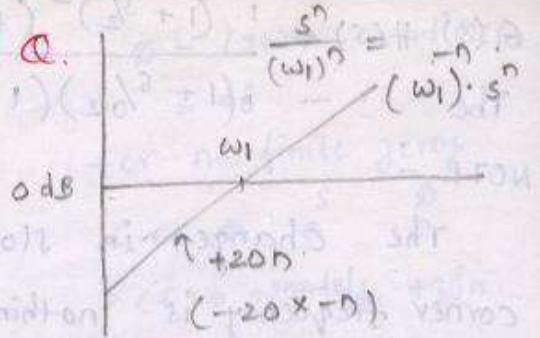 Q.
s^n / (ω1)^n = (ω1)^-n · s^n
ω1
0 dB
+20n
(-20 x -n)